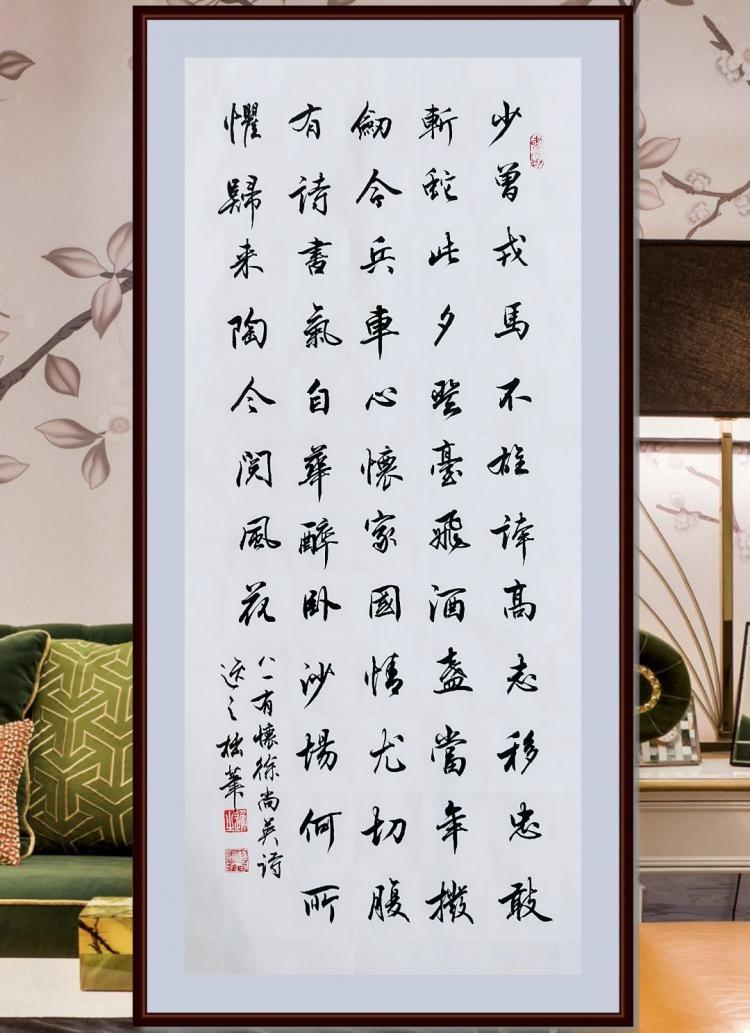 少曾戎馬不旌誇高志移忠敢
斬蛇此夕登臺飛酒盞當年撥
劔令兵車心懷家國情尤切腹
有詩書氣自華醉卧沙場何所
懼歸来陶令閱風花
八一有懷徐尚英詩
逸之拙筆